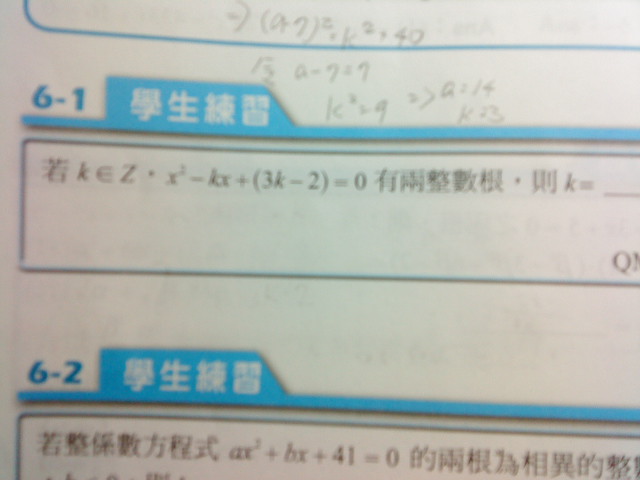 => (a-7)² - k² = 40
a-7=7
k²=9 => a=14
k=3
6-1 學生練習
若 k∈Z,x²-kx+(3k-2)=0 有兩整數根,則 k=
6-2 學生練習
若整係數方程式 ax²+bx+41=0 的兩根為相異的整